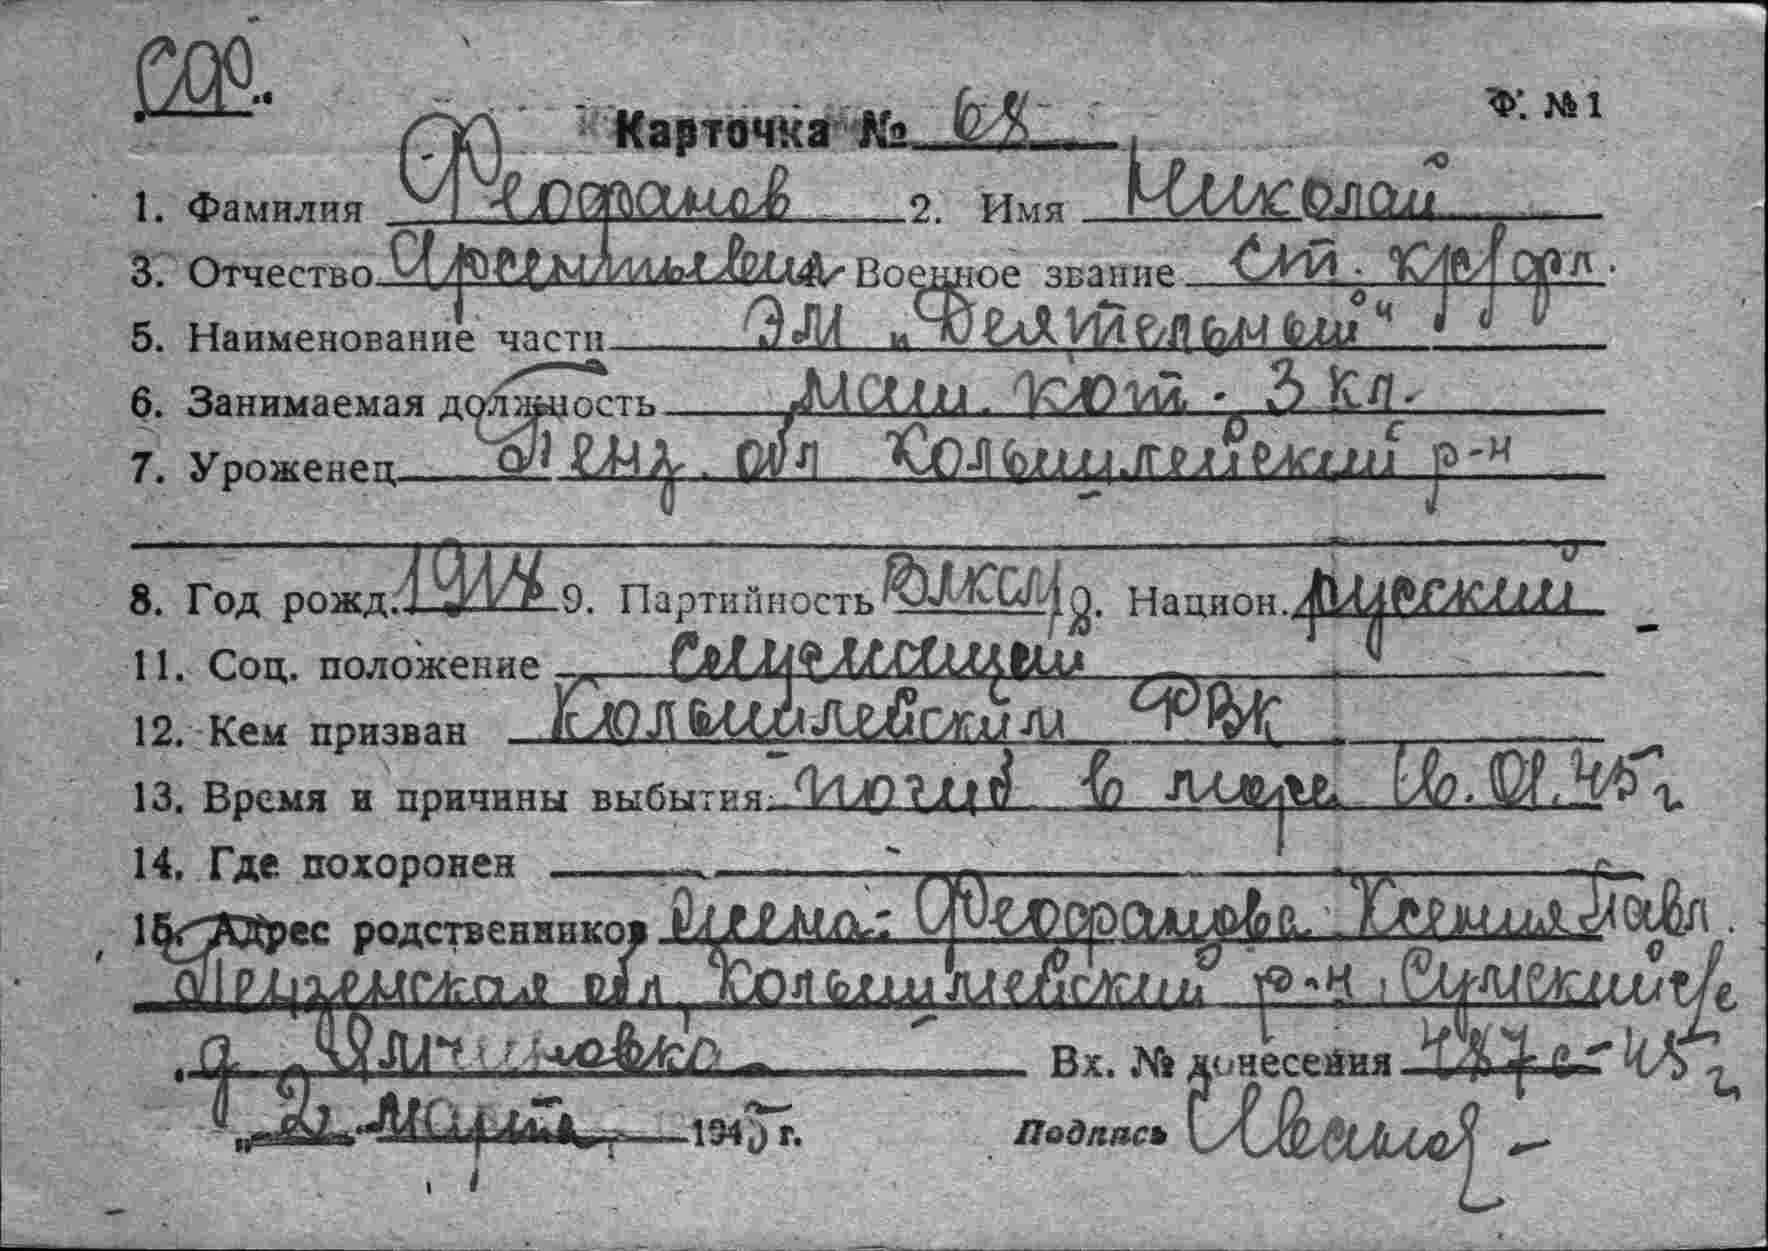 СФ.
Ф. № 1
Карточка № 68
1. Фамилия Феофанов 2. Имя Николай
3. Отчество Арсентьевич 4. Военное звание ст. кр/фл.
5. Наименование части ЭМ „Деятельный"
6. Занимаемая должность маш. кот. 3 кл.
7. Уроженец Пенз. обл Колышлейский р-н
8. Год рожд. 1918 9. Партийность ВЛКСМ 10. Национ. русский
11. Соц. положение служащий
12. Кем призван Колышлейским РВК
13. Время и причины выбытия: погиб в море 16.01.45 г
14. Где похоронен
15. Адрес родственников жена: Феофанова Ксения Павл.
Пензенская обл, Колышлейский р-н, с/с
д Вх. № донесения 487с-45 г
„2" марта 1945 г. Подпись Иванов